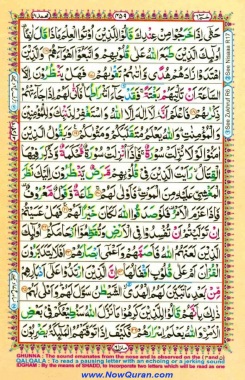 حَتّٰى إِذَا خَرَجُوا مِنْ عِنْدِكَ قَالُوا لِلَّذِينَ أُوتُوا الْعِلْمَ مَاذَا قَالَ اٰنِفًا
أُولٰٓئِكَ الَّذِينَ طَبَعَ اللّٰهُ عَلٰى قُلُوبِهِمْ وَاتَّبَعُوا أَهْوَآءَهُمْ وَالَّذِينَ
اهْتَدَوْا زَادَهُمْ هُدًى وَّاٰتٰىهُمْ تَقْوٰىهُمْ فَهَلْ يَنْظُرُونَ إِلَّا
السَّاعَةَ أَنْ تَأْتِيَهُمْ بَغْتَةً فَقَدْ جَآءَ أَشْرَاطُهَا فَأَنّٰى لَهُمْ إِذَا جَآءَتْهُمْ
ذِكْرٰىهُمْ فَاعْلَمْ أَنَّهٗ لَآ إِلٰهَ إِلَّا اللّٰهُ وَاسْتَغْفِرْ لِذَنْبِكَ وَ
لِلْمُؤْمِنِينَ وَالْمُؤْمِنٰتِ وَاللّٰهُ يَعْلَمُ مُتَقَلَّبَكُمْ وَمَثْوٰىكُمْ وَيَقُولُ الَّذِينَ
اٰمَنُوا لَوْلَا نُزِّلَتْ سُورَةٌ فَإِذَآ أُنْزِلَتْ سُورَةٌ مُّحْكَمَةٌ وَّذُكِرَ فِيهَا
الْقِتَالُ رَأَيْتَ الَّذِينَ فِي قُلُوبِهِمْ مَّرَضٌ يَّنْظُرُونَ إِلَيْكَ نَظَرَ
الْمَغْشِيِّ عَلَيْهِ مِنَ الْمَوْتِ فَأَوْلٰى لَهُمْ طَاعَةٌ وَّقَوْلٌ مَّعْرُوفٌ
فَإِذَا عَزَمَ الْأَمْرُ فَلَوْ صَدَقُوا اللّٰهَ لَكَانَ خَيْرًا لَّهُمْ فَهَلْ عَسَيْتُمْ
إِنْ تَوَلَّيْتُمْ أَنْ تُفْسِدُوا فِي الْأَرْضِ وَتُقَطِّعُوٓا أَرْحَامَكُمْ أُولٰٓئِكَ
الَّذِينَ لَعَنَهُمُ اللّٰهُ فَأَصَمَّهُمْ وَأَعْمٰىٓ أَبْصَارَهُمْ أَفَلَا يَتَدَبَّرُونَ
الْقُرْاٰنَ أَمْ عَلٰى قُلُوبٍ أَقْفَالُهَا إِنَّ الَّذِينَ ارْتَدُّوا عَلٰٓى أَدْبَارِهِمْ
مِّنْ بَعْدِ مَا تَبَيَّنَ لَهُمُ الْهُدَى الشَّيْطٰنُ سَوَّلَ لَهُمْ وَأَمْلٰى لَهُمْ
ذٰلِكَ بِأَنَّهُمْ قَالُوا لِلَّذِينَ كَرِهُوا مَا نَزَّلَ اللّٰهُ سَنُطِيعُكُمْ فِي بَعْضِ
GHUNNA : The sound emanates from the nose and is observed on the
QALQALA : To read a pausing letter with an echoing or a jerking sound
IDGHAM : By the means of SHADD, to incorporate two letters which will be read as one
www.NowQuran.com